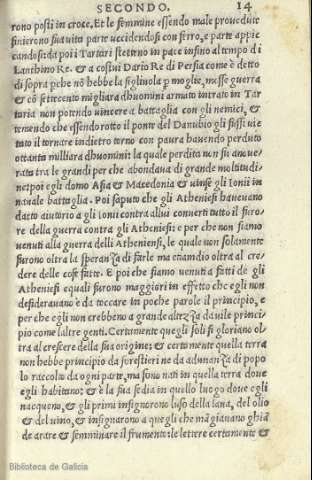 SECONDO. 14
rono posti in croce. Et le femmine essendo male proueduté
finierono sua uita parte uccidendosi con ferro, e parte appic
candosi: da poi i Tartari stettero in pace infino al tempo di
Lanthino Re. & a costui Dario Re di Persia come è detto
di sopra pche nō hebbe la figliuola p moglie, mosse guerra
& cō settecento migliara dhuomini armato intrato in Tar
taria non potendo uincere a battaglia con gli nemici, &
temendo che essendo rotto il ponte del Danubio gli fusse uie
tato il tornare indietro torno con paura hauendo perduto
ottanta milliara dhuomini la quale perdita non fu anoue
rata tra le grandi per che abondaua di grande moltitudi
ne: poi egli domo Asia & Macedonia & uinse gli Ionii in
nauale battaglia. Poi saputo che gli Atheniesi haueuano
dato aiutorio a gli Ionii contra allui conuerti tutto il furo-
re della guerra contra gli Atheniesi: e per che non siamo
uenuti alla guerra delli Atheniensi, le quale non solamente
furono oltra la speranza di farle ma etiamdio oltra al cre
dere delle cose fatte. E poi che siamo uenuti a fatti de gli
Atheniesi equali furono maggiori in effetto che egli non
desiderauano è da toccare in poche parole il principio, e
per che egli non crebbeno a grande altezza da uile princi-
pio come laltre genti. Certamente quegli soli si gloriano ol
tra al crescere della sua origine; & certamente quella terra
non hebbe principio da forestieri ne da adunanza di popo
lo raccolto da ogni parte, ma sono nati in quella terra doue
egli habitano; & è la sua sedia in quello luogo doue egli
nacqueno, & gli primi insignorono luso della lana, del olio
& del uino, & insignarono a quegli che māgiauano ghiā
de arare & semminare il frumento: le lettere certamente &
Biblioteca de Galicia